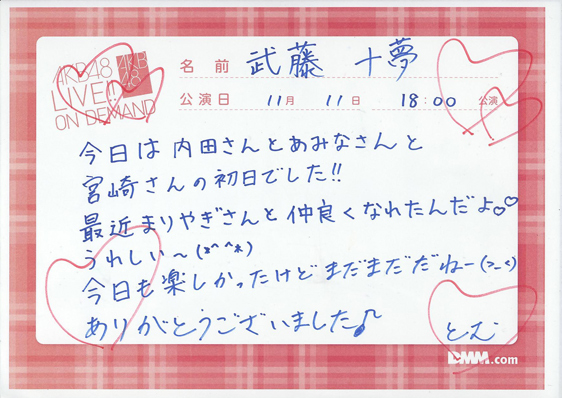 AKB48
LIVE!!
ON DEMAND
AKB
48
名前 武藤 十夢
公演日 11月 11日 18:00 公演
今日は内田さんとあみなさんと
宮崎さんの初日でした!!
最近まりやぎさんと仲良くなれたんだよ♡♡
うれしい〜(*^^*)
今日も楽しかったけどまだまだだねー(>_<)
ありがとうございました♪
とむ
DMM.com